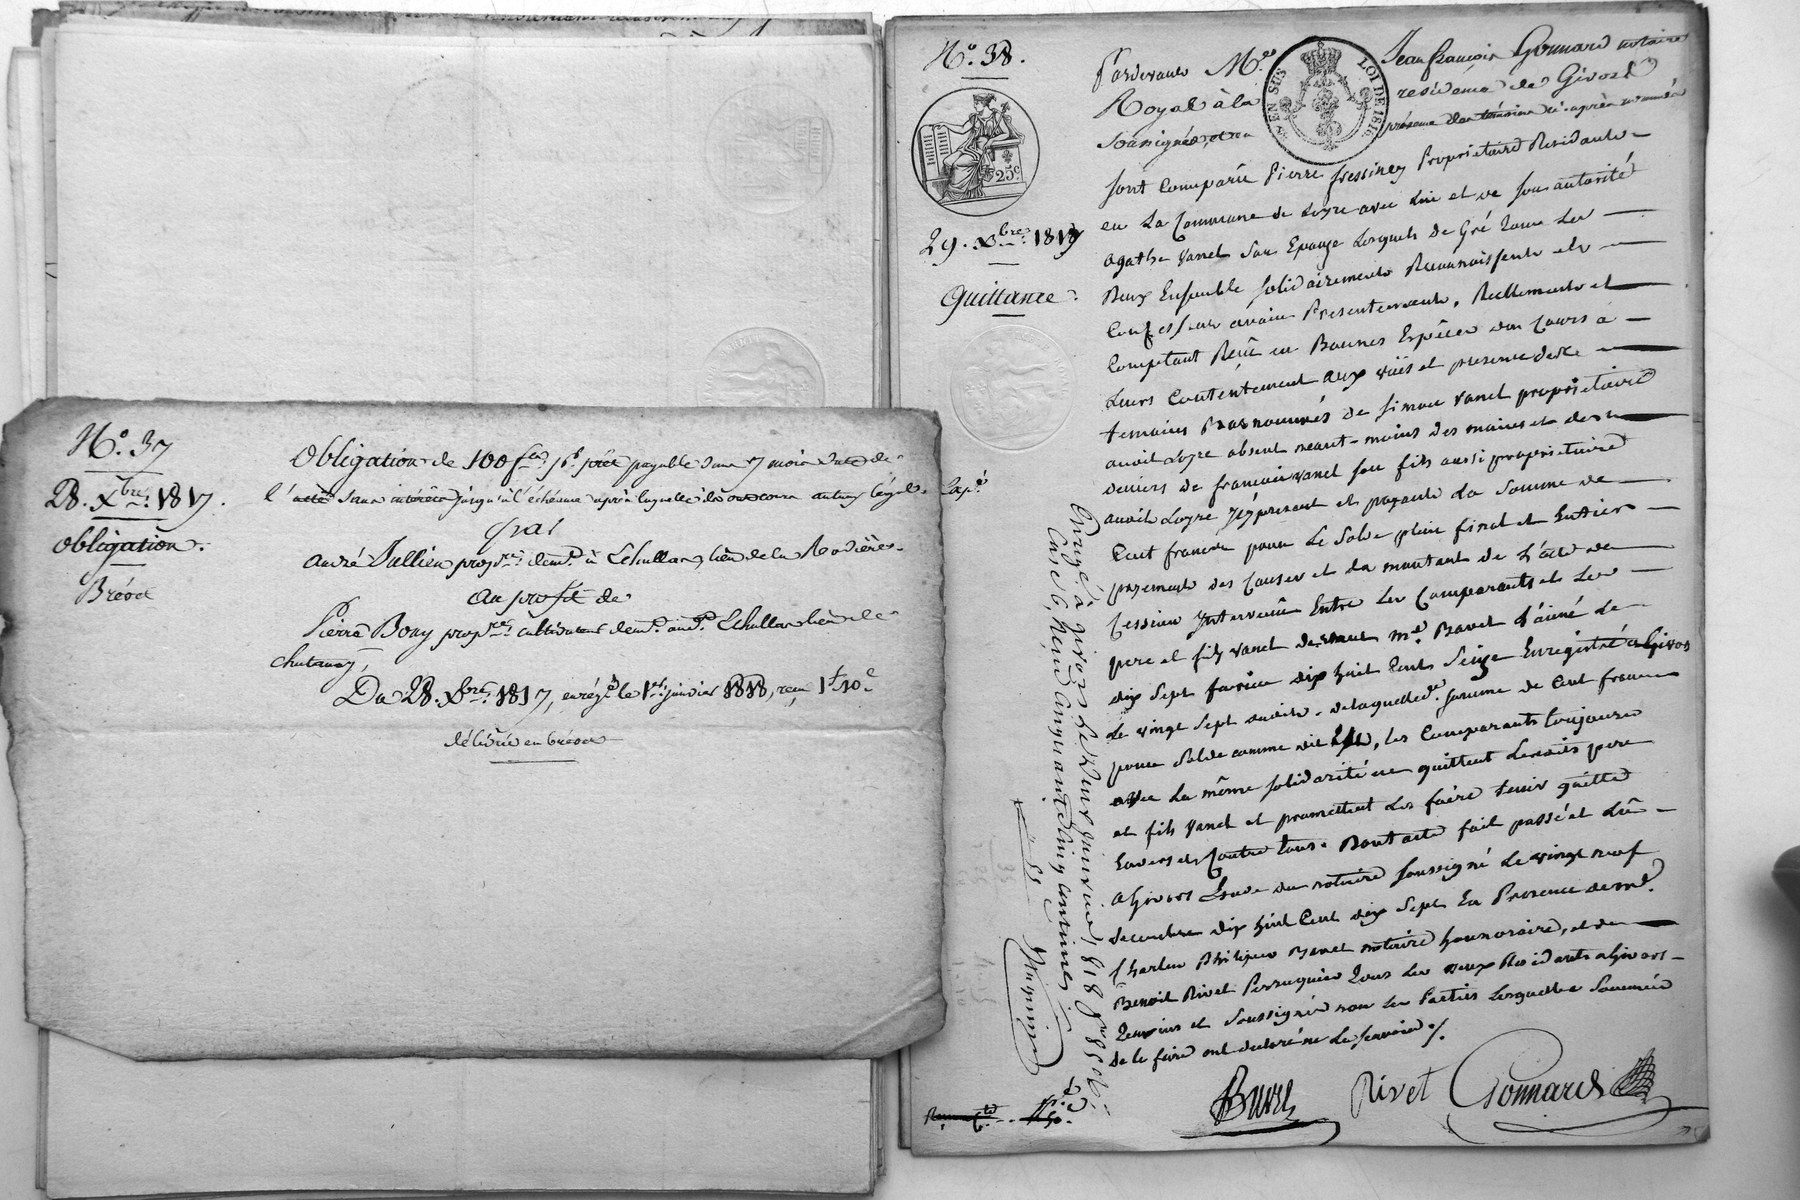 N.o 37
28. Xbre. 1817.
Obligation.
Brévet
Obligation de 100 f payable dans 7 mois date de
l'acte sans intérêts jusqu'à l'échéance après laquelle
par
André Jullien propre. demt. à Echallas, lieu de la Rodières
au profit de
Pierre Bony propre. cultivateur demt. aud. Echallas lieu de
chatanay,
Du 28. Xbre. 1817, enrégé. le 1er. janvier 1818, reçu 1f 10c
délivrée en brévet
N.o 38.
25c.
29. Xbre. 1817
Quittance
EN SUS
LOI DE 1816.
Pardevant Me. Jean françois Gonnard notaire
Royal à la résidence de Givors
Soussigné, et en présence des témoins ci-après nommés
sont Comparus Pierre fressiney Propriétaire Residant
en La Commune de Loyre avec Lui et de Son autorité
agathe Vanel Son Epouze Lesquels de Gré Tous Les
Deux Ensemble Solidairement Reconnoissent et
Confessent avoir Presentement, Réellement et
Comptant Reçû en Bonnes Espèces du Cours à
Leurs Contentement aux vües et presence des
temoins de Simon Vanel propriétaire
audit Loyre absent neant-moins des mains et des
deniers de françois Vanel son fils aussi propriétaire
audit Loyre present et payant La Somme de
Cent francs pour Le Solde plein final et Entier
payement des Causes et du montant de L'acte de
Cession Intervenûe Entre Les Comparants et Les
pere et fils Vanel devant me. Bavet L'ainé Le
dix Sept fevrier dix huit Cent Seize Enregistré à Givors
Le vingt Sept dudit. de laquelle de. Somme de Cent francs
pour Solde comme dit est, les Comparants toujours
avec La même Solidarité en quittent Lesdits pere
et fils Vanel et promettent Les faire tenir quitte
Envers et Contre tous. Dont acte fait passé et Lû
a Givors Etude du notaire Soussigné Le vingt neuf
decembre dix huit Cent dix Sept En Presence de me.
Charles Philippe Bavet notaire honnoraire, et de
Benoit Rivet Perruquier Tous Les deux Residants a Givors
Temoins et Soussignés non Les Parties Lesquelles Sommées
de le faire ont declaré ne Le Savoir ./.
Rivet
Gonnard
Enregé. à givors le neuf janvier 1818 fo. 85 Vo.
Case 6, reçu cinquante cinq centimes